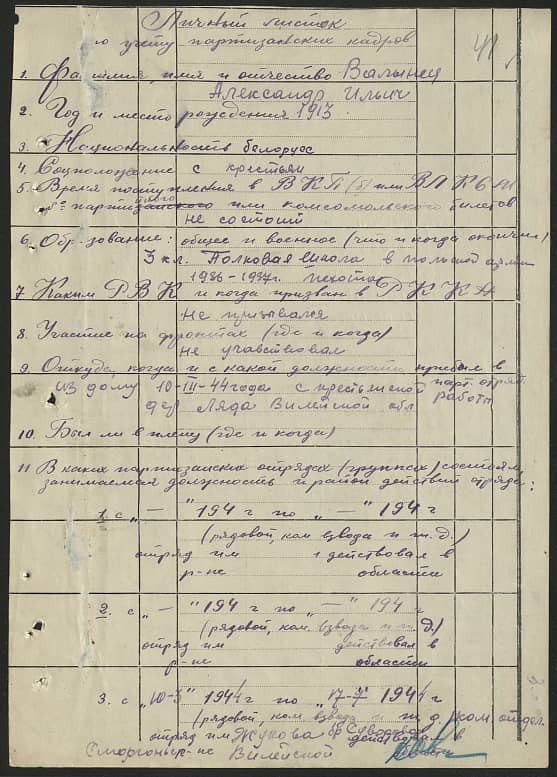 Личный листок
по учету партизанских кадров
41
1. Фамилия, имя и отчество Валынец
Александр Ильич
2. Год и место рождения 1913
3. Национальность белорус
4. Соцположение с крестьян
5. Время поступления в ВКП(б) или ВЛКСМ
№ партийного или комсомольского билетов
не состоит
6. Образование: общее и военное (что и когда окончил)
3 кл. Полковая школа в польской армии
1936-1937г. пехота
7 Каким РВК и когда призван в РККА
Не призывался
8. Участие на фронтах (где и когда)
Не учавствовал
9. Откуда, когда и с какой должности прибыл в парт. отряд
из дому 10-III-44 года с крестьянской работы
дер Ляда Вилейской обл
10. Был ли в плену (где и когда)
11 В каких партизанских отрядах (группах) состоял,
занимаемая должность и район действий отряда:
1. с „—" 194 г по „—" 194 г
(рядовой, ком взвода и т. д.)
отряд им действовал в
р-не области
2. с „—" 194 г по „—" 194 г
(рядовой, ком. взвода и т. д.)
отряд им действовал в
р-не области
3. с „10-3" 1944 г по „17-7" 1944 г
(рядовой, ком. взвода и т. д.) ком. отдел.
отряд им Жукова бр Суворова действовал в
Сморгонск р-не Вилейской области